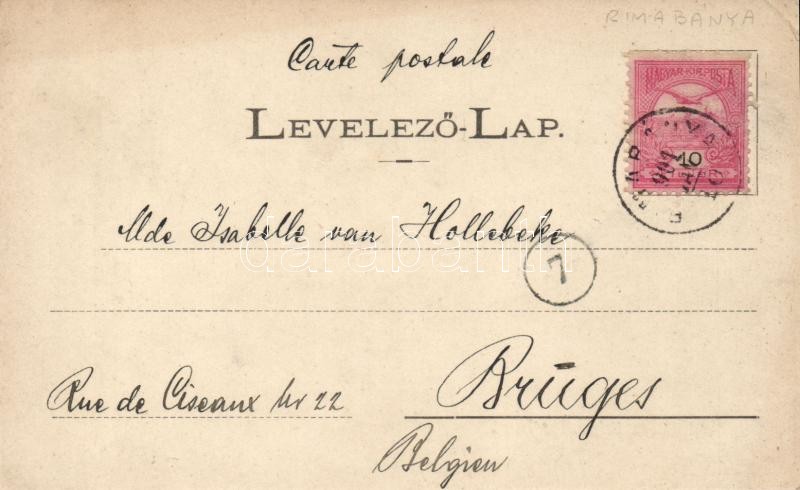 RIMABANYA
Carte postale
MAGYAR·KIR·POSTA
LEVELEZŐ-LAP.
10
Mde Isabelle van Hollebeke
darabanth
7
Rue de Ciseaux Nr 22
Bruges
Belgien